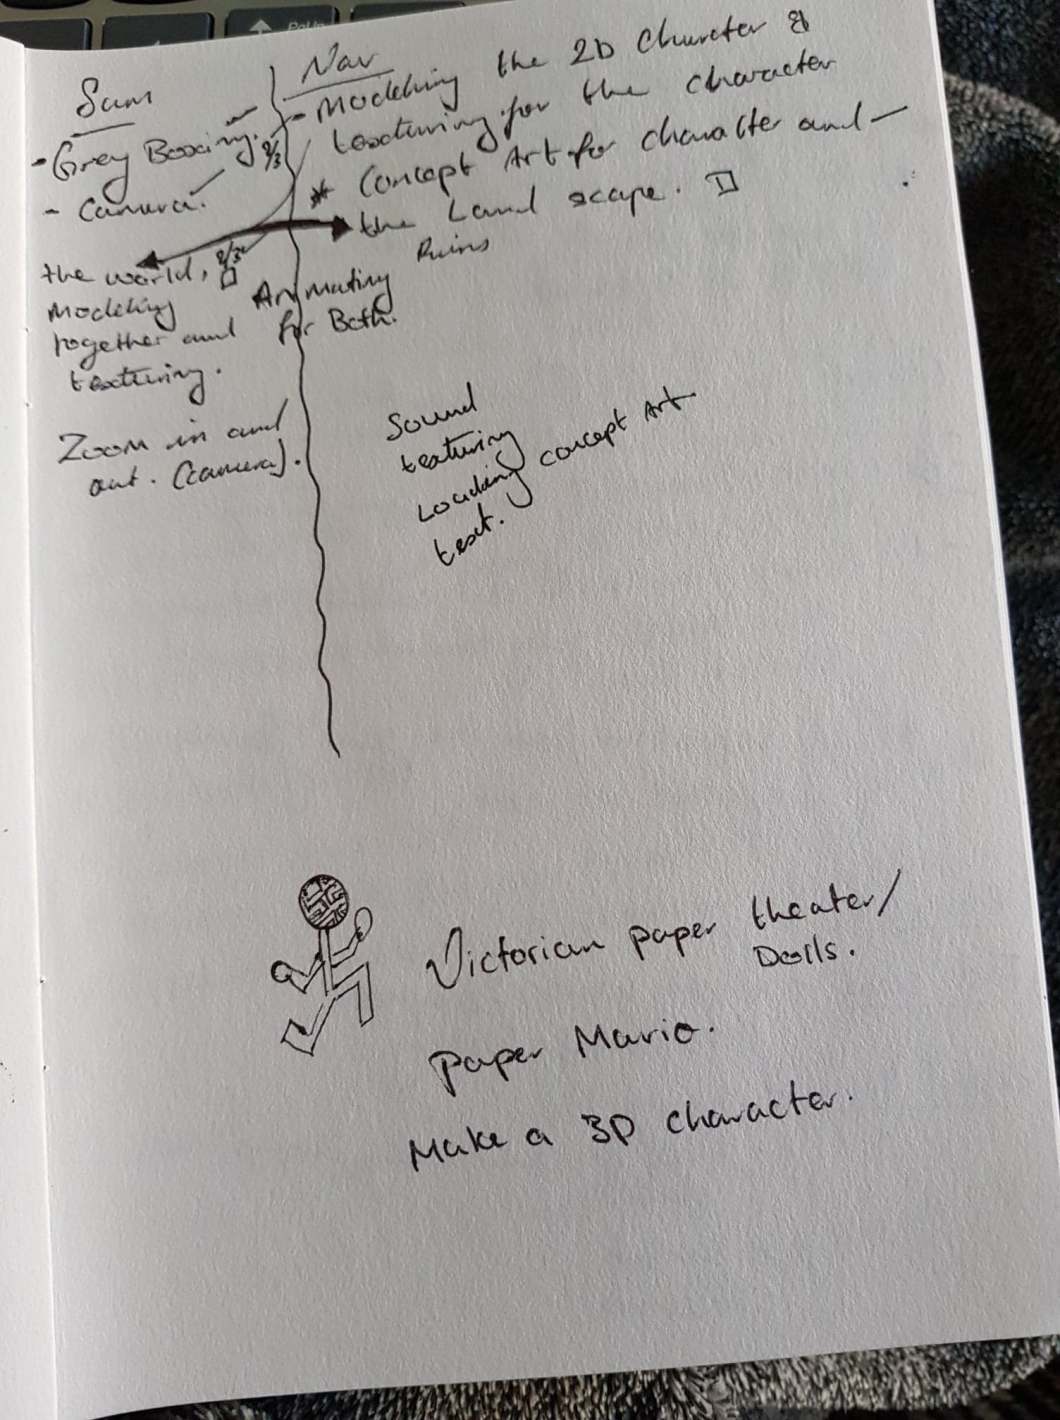 Sam
- Grey Boxing.
- Camera.
the world,
Modeling
together and
texturing.
Zoom in and
out. (camera).
Nav
- Modeling the 2D Character &
texturing for the character
* Concept Art for character and -
the Land scape.
Ruins
Animating
for Both.
Sound
texturing
Loading concept Art
text.
Victorian paper theater/
Dolls.
Paper Mario.
Make a 3D character.